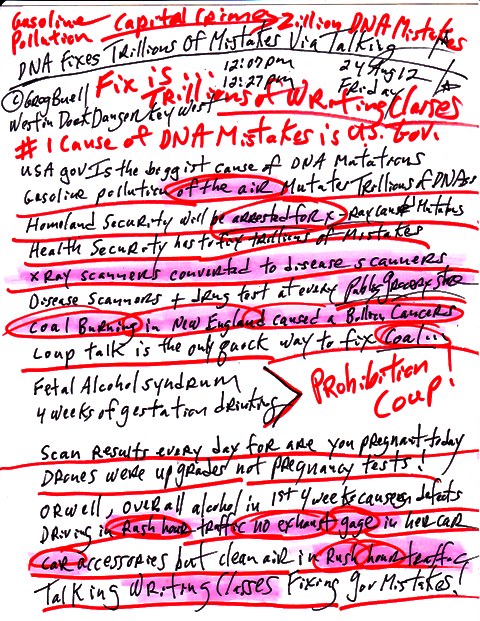 Gasoline Capital Crime > Zillion DNA Mistakes
Pollution
DNA Fixes Trillions of Mistakes Via Talking
12:07pm 24 Aug 12
Fix is ::
12:27pm Friday
© Greg Buell
Trillions of Writing Classes
Westin Dock Danger Key West
#1 Cause of DNA Mistakes is U.S. Gov.
USA gov Is the beggist cause of DNA Matatrons
Gasoline pollution of the air Mutates Trillions of DNAs
Homeland Security will be arrested for x-ray caused Mutatus
Health Security has to fix trillions of Mistakes
X Ray scanners converted to disease scanners
Disease Scanners + drug test at every Publix grocery store
Coal Burning in New England caused a Billion Cancers
Coup talk is the only quock way to fix Coal ::
Fetal Alcohol syndrum
4 weeks of gestation drinting
Prohibition
Coup!
Scan results every day for are you pregnant today
Drones were upgrades not pregnancy tests!
Orwell, overall alcohol in 1st 4 weeks causes defects
Driving in Rush hour traffic no exhaust gage in her car
car accessories but clean air in Rush hour traffic
Talking Writing Classes Fixing gov Mistakes!